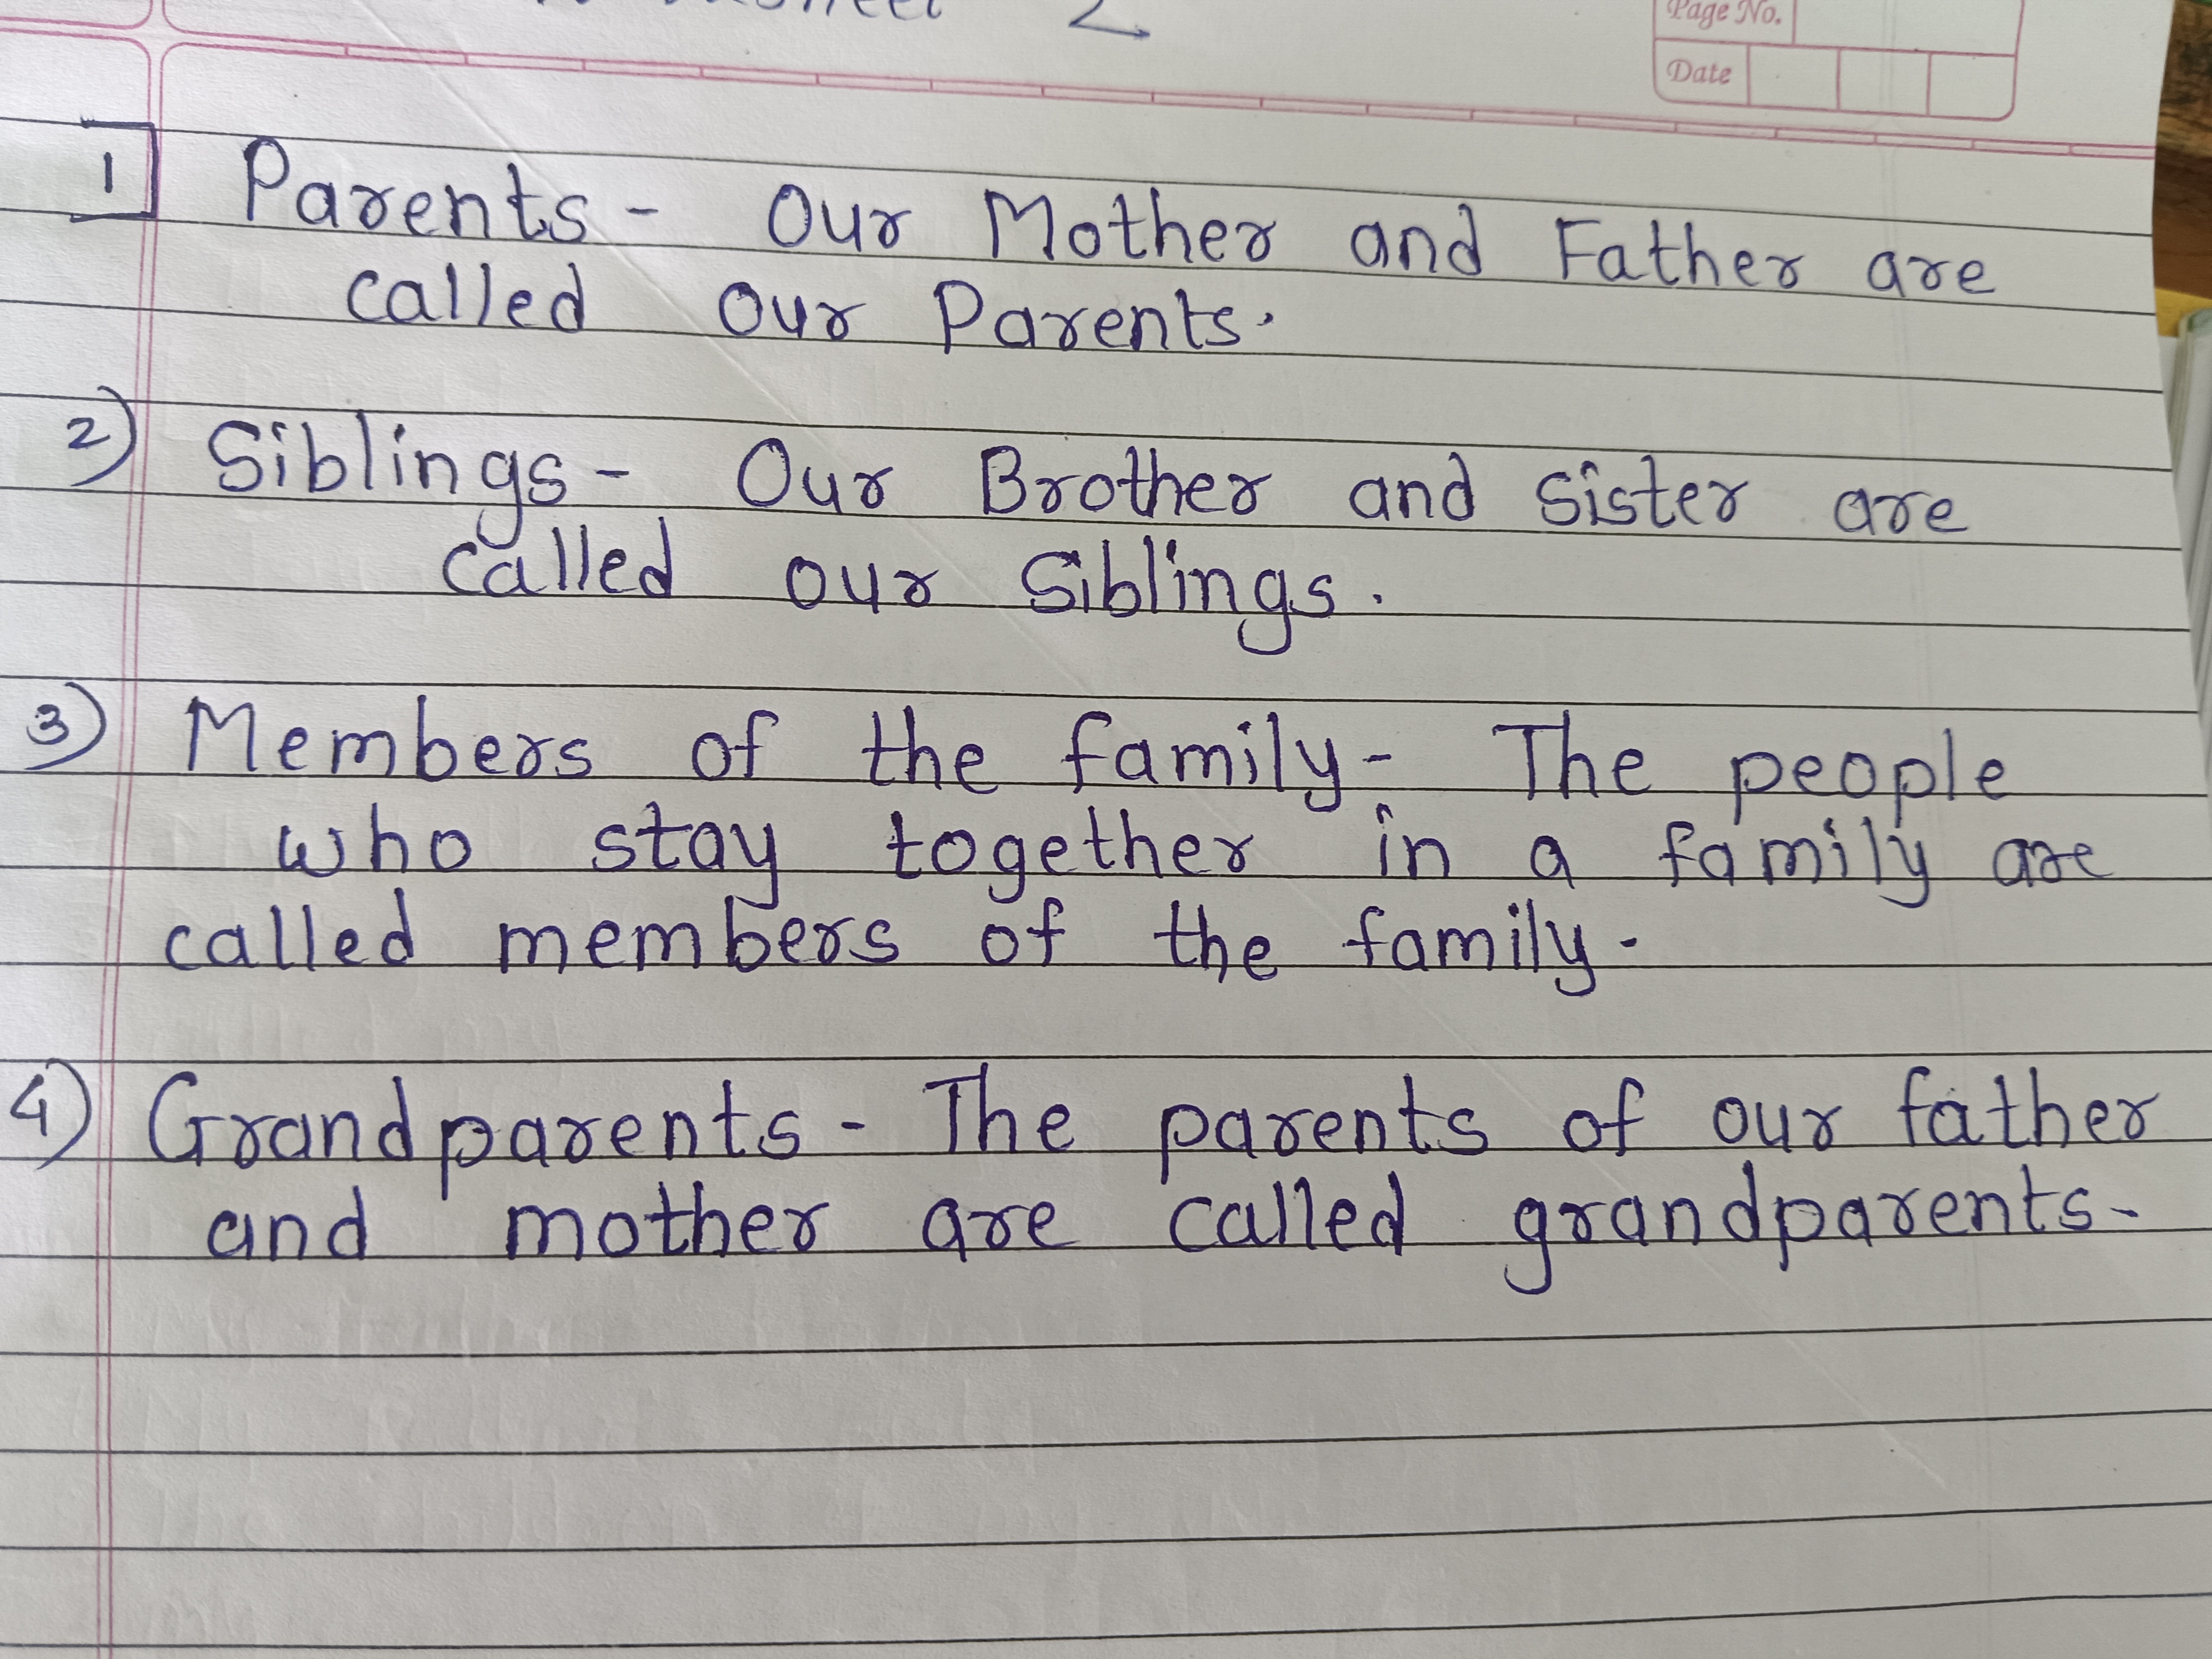 2
Page No.
Date
1 Parents - Our Mother and Father are
called our Parents.
2) Siblings - Our Brother and sister are
called our Siblings.
3) Members of the family - The people
who stay together in a family are
called members of the family.
4) Grandparents - The parents of our father
and mother are called grandparents.